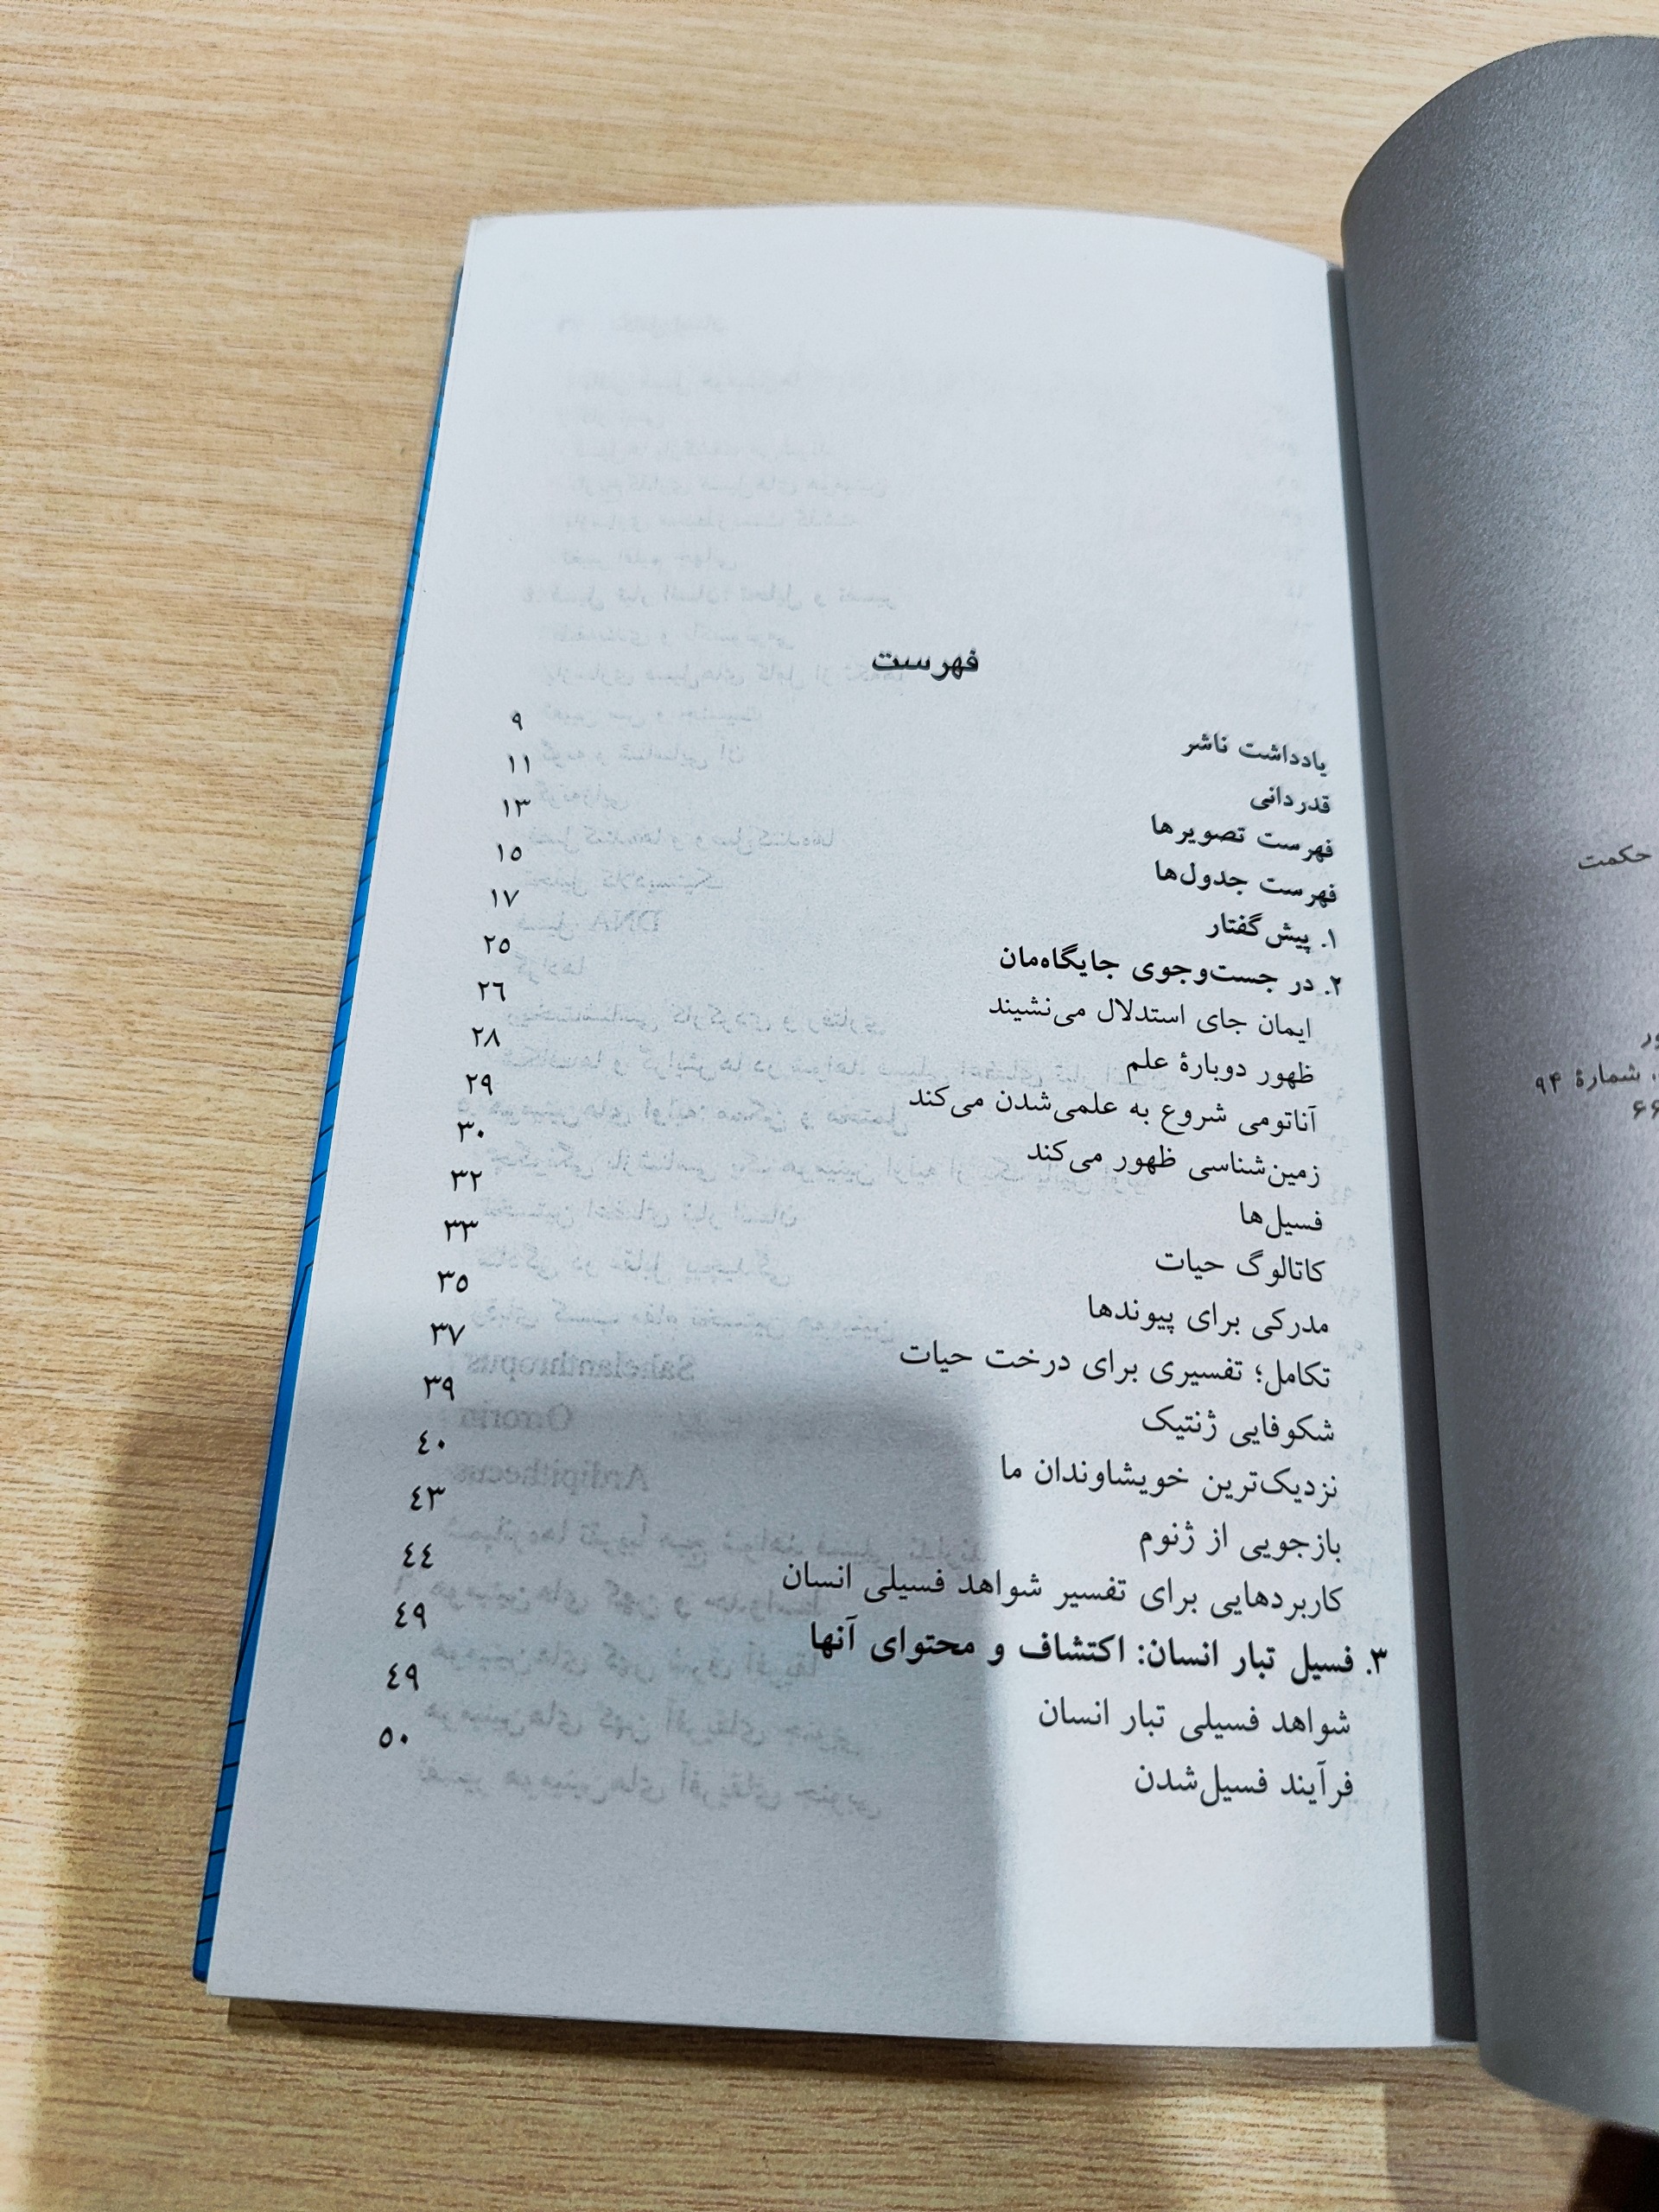 فهرست
یادداشت ناشر ۹
قدردانی ۱۱
فهرست تصویرها ۱۳
فهرست جدول‌ها ۱۵
۱. پیش‌گفتار ۱۷
۲. در جست‌وجوی جایگاه‌مان ۲۵
ایمان جای استدلال می‌نشیند ۲۶
ظهور دوبارۀ علم ۲۸
آناتومی شروع به علمی‌شدن می‌کند ۲۹
زمین‌شناسی ظهور می‌کند ۳۰
فسیل‌ها ۳۲
کاتالوگ حیات ۳۳
مدرکی برای پیوندها ۳۵
تکامل؛ تفسیری برای درخت حیات ۳۷
شکوفایی ژنتیک ۳۹
نزدیک‌ترین خویشاوندان ما ۴۰
بازجویی از ژنوم ۴۳
کاربردهایی برای تفسیر شواهد فسیلی انسان ۴۴
۳. فسیل تبار انسان: اکتشاف و محتوای آنها ۴۹
شواهد فسیلی تبار انسان ۴۹
فرآیند فسیل‌شدن ۵۰
حکمت
شمارۀ ۹۴